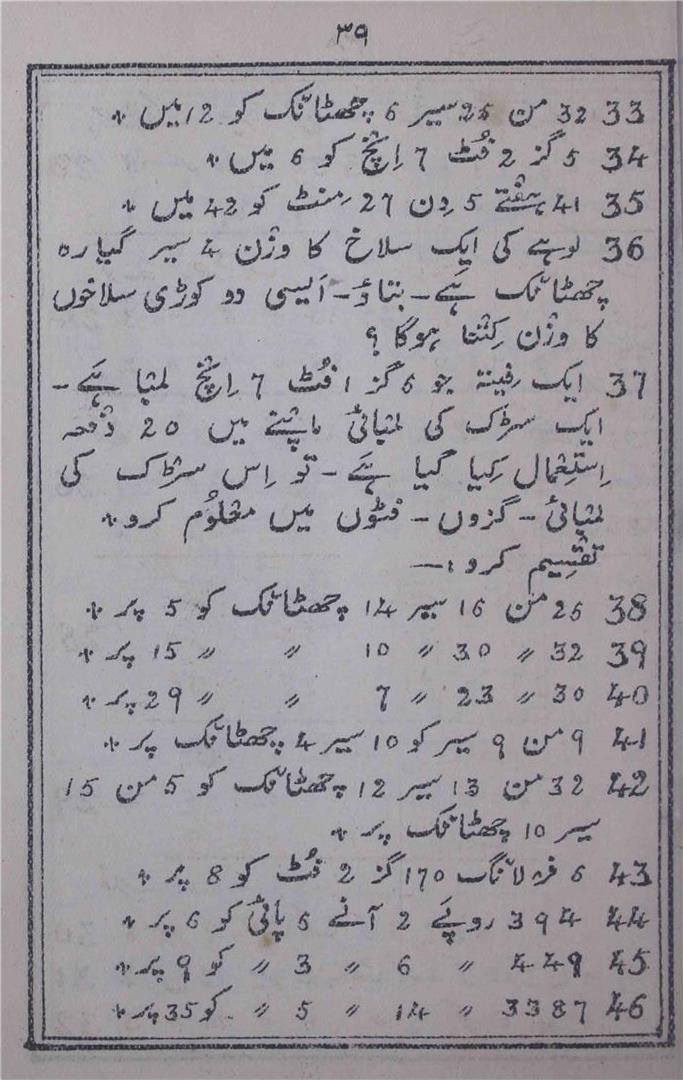 ۳۹
33 32 من 25 سیر 6 چھٹانک کو 12 میں *
34 5 گز 2 فُٹ 7 اِنچ کو 6 میں *
35 41 ہفتے 5 دِن 27 مِنٹ کو 42 میں *
36 لوہے کی ایک سلاخ کا وزن 4 سیر گیارہ
چھٹانک ہَے - بتاؤ - اَیسی دو کوڑی سلاخوں
کا وزن کِتنا ہوگا ؟
37 ایک فیتہ جو 6 گز 1 فُٹ 7 اِنچ لمبا ہَے -
ایک سڑک کی لمبائی ماپنے میں 20 دفعہ
اِستِعمال کِیا گیا ہَے - تو اِس سڑک کی
لمبائی - گزوں - فٹوں میں معلُوم کرو *
تقسِیم کرو :—
38 25 من 16 سیر 14 چھٹانک کو 5 پر *
39 32 〃 30 〃 10 〃 〃 15 پر *
40 30 〃 23 〃 7 〃 〃 29 پر *
41 9 من 9 سیر کو 10 سیر 4 چھٹانک پر *
42 32 من 13 سیر 12 چھٹانک کو 5 من 15
سیر 10 چھٹانک پر *
43 6 فرلانگ 170 گز 2 فُٹ کو 8 پر *
44 394 روپَے 2 آنے 6 پائی کو 6 پر *
45 449 〃 6 〃 3 〃 کو 9 پر *
46 3387 〃 14 〃 5 〃 کو 35 پر *